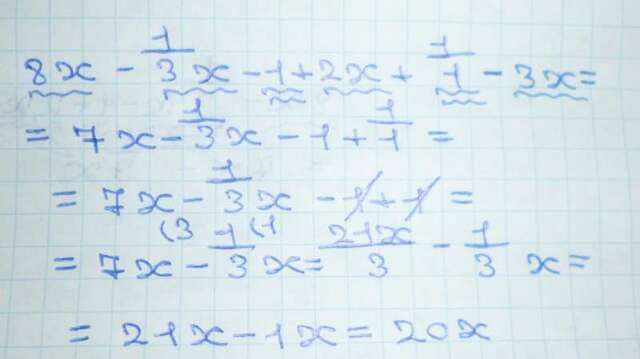 8x - 1/3 x - 1 + 2x + 1/1 - 3x =
= 7x - 1/3 x - 1 + 1/1 =
= 7x - 1/3 x - 1 + 1 =
= 7x(3 - 1/3(1 x = 21x/3 - 1/3 x =
= 21x - 1x = 20x